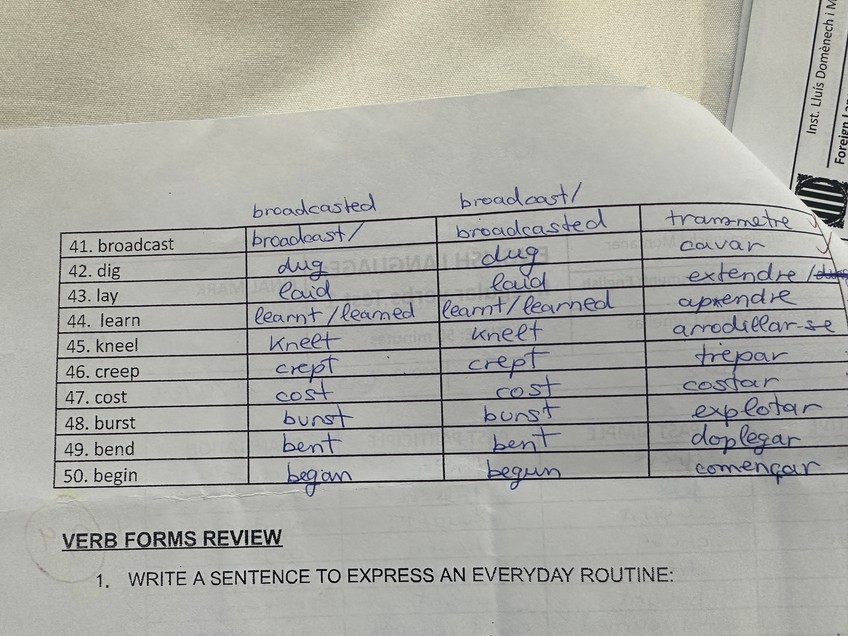 Inst. Lluís Domènech i M
Foreign Lan
broadcasted broadcast/
41. broadcast broadcast/ broadcasted transmetre
42. dig dug dug cavar
43. lay laid laid extendre /
44. learn learnt/learned learnt/learned aprendre
45. kneel knelt knelt arrodillar-se
46. creep crept crept trepar
47. cost cost cost costar
48. burst burst burst explotar
49. bend bent bent doplegar
50. begin began begun començar
VERB FORMS REVIEW
1. WRITE A SENTENCE TO EXPRESS AN EVERYDAY ROUTINE: